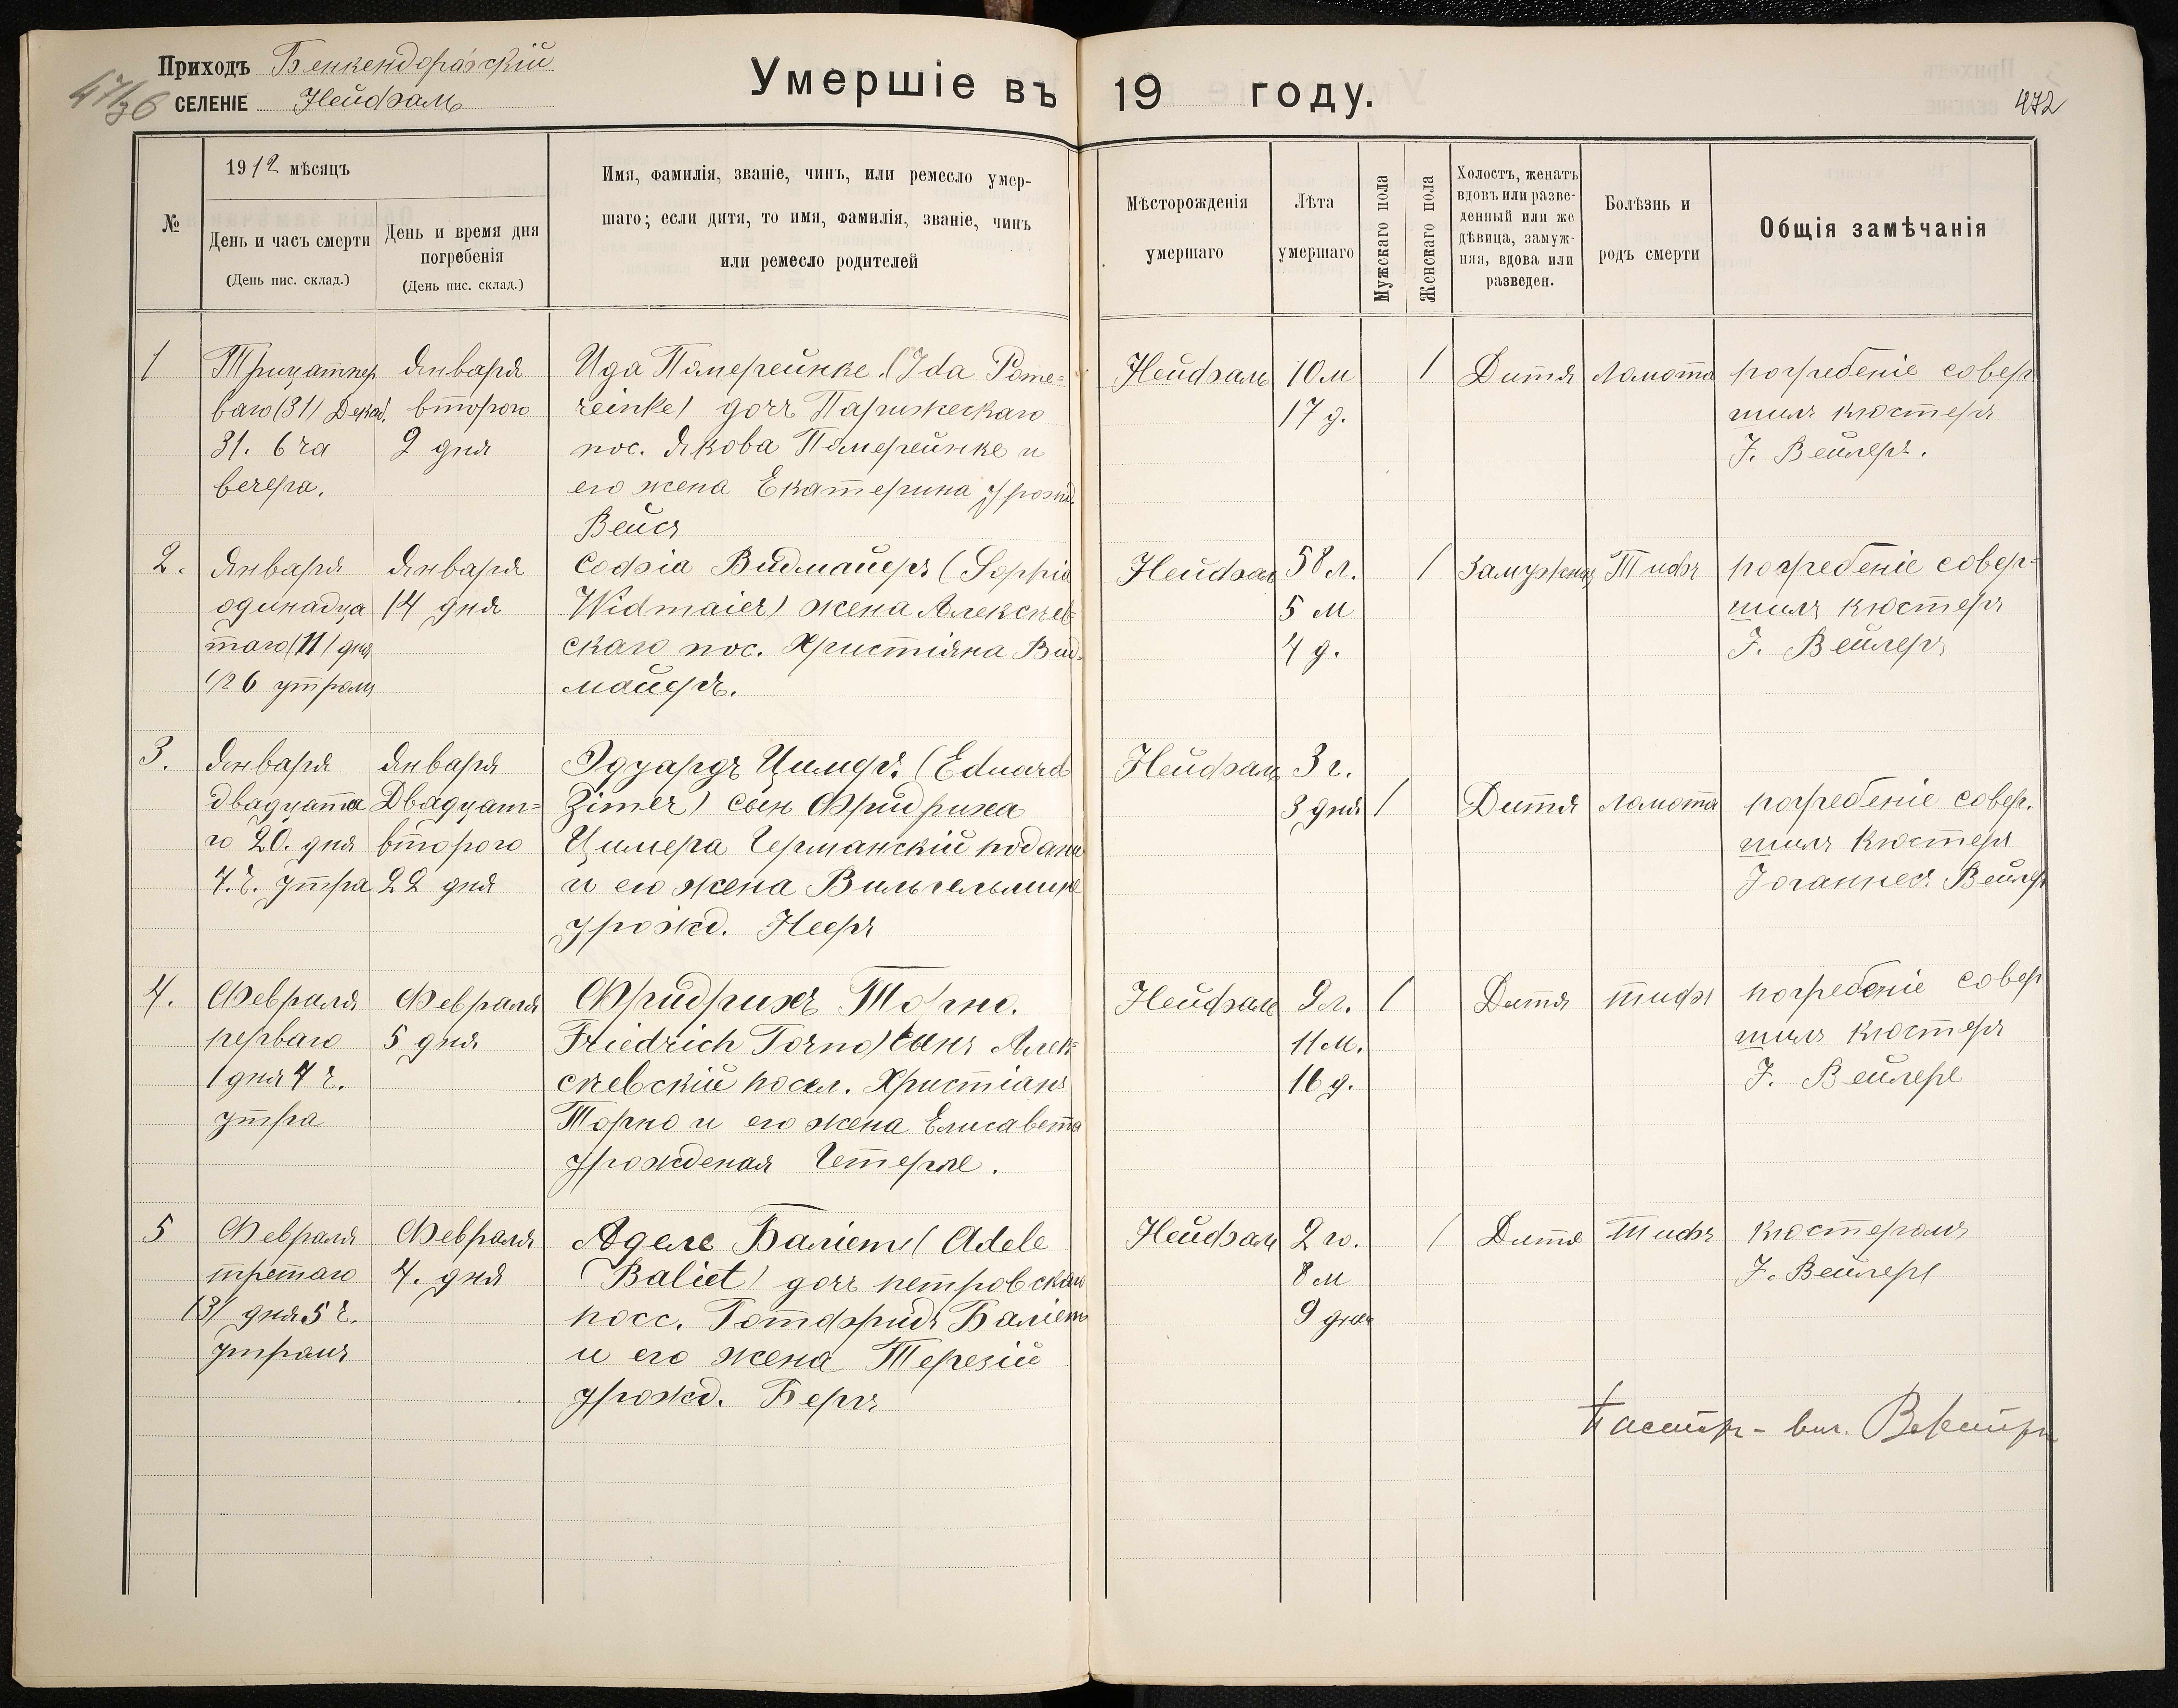 Приходъ Бенкендорфскій
СЕЛЕНІЕ Нейфзаль
Умершіе въ 19 году.
472
№
1912 мѣсяцъ
День и часъ смерти
(День пис. склад.)
День и время дня
погребенія
(День пис. склад.)
Имя, фамилія, званіе, чинъ, или ремесло умер-
шаго; если дитя, то имя, фамилія, званіе, чинъ
или ремесло родителей
Мѣсторожденія
умершаго
Лѣта
умершаго
Мужскаго пола
Женскаго пола
Холостъ, женатъ
вдовъ или разве-
денный или же
дѣвица, замуж-
няя, вдова или
разведен.
Болѣзнь и
родъ смерти
Общія замѣчанія
1
Трицатпер
ваго (31) Декаб.
31. 6 ча
вечера.
Января
второго
2 дня
Ида Памерейнке (Ida Pome=
reinke) дочь Парижескаго
пос. Якова Памерейнке и
его жена Екатерина урожд.
Вейсъ
Нейфзаль
10 м
17 д.
1
Дитя
Ломота
погребеніе совер
шилъ кюстеръ
J. Вейлеръ.
2.
Января
одинадца
таго (11) дня
1/2 6 утромъ
Января
14 дня
Софзіа Видмайеръ (Sophia
Widmaier) жена Алексѣев
скаго пос. Христіяна Вид-
майеръ.
Нейфзал
58 л.
5 м
4 д.
1
Замужная
Тифъ
погребеніе совер-
шилъ кюстеръ
J. Вейлеръ
3.
Января
двадцата
го 20. дня
7. ч. утра
Января
Двадцат=
второго
22 дня
Эдуардъ Цимеръ. (Eduard
Zimer) сын Фридриха
Цимера Германскій подани
и его жена Вильгельмине
урожд. Нееръ
Нейфзаль
3 г.
3 дня
1
Дитя
ломота
погребеніе совер.
шилъ кюстеръ
Jоганнесъ Вейлеръ
4.
Февраля
перваго
1 дня 7 ч.
утра
Февраля
5 дня
Фридрихъ Торно.
Friedrich Torno) сынъ Алек-
сѣевскій посел. Христіанъ
Торно и его жена Елисавета
урожденая
Нейфзаль
2 л.
11 м.
16 д.
1
Дитя
тифъ
погребеніе совер
шилъ кюстеръ
J. Вейлеръ
5
Февраля
третаго
(3) дня 5 ч.
утромъ
Февраля
4. дня
Аделе Баліетъ (Adele
Baliet) дочь петровскаго
посс. Готфридъ Баліет
и его жена Терезій
урожд. Бергъ
Нейфзал
2 го.
8 м
9 дней
1
Дитя
Тифъ
кюстеромъ
J. Вейлеръ
Пасторъ-